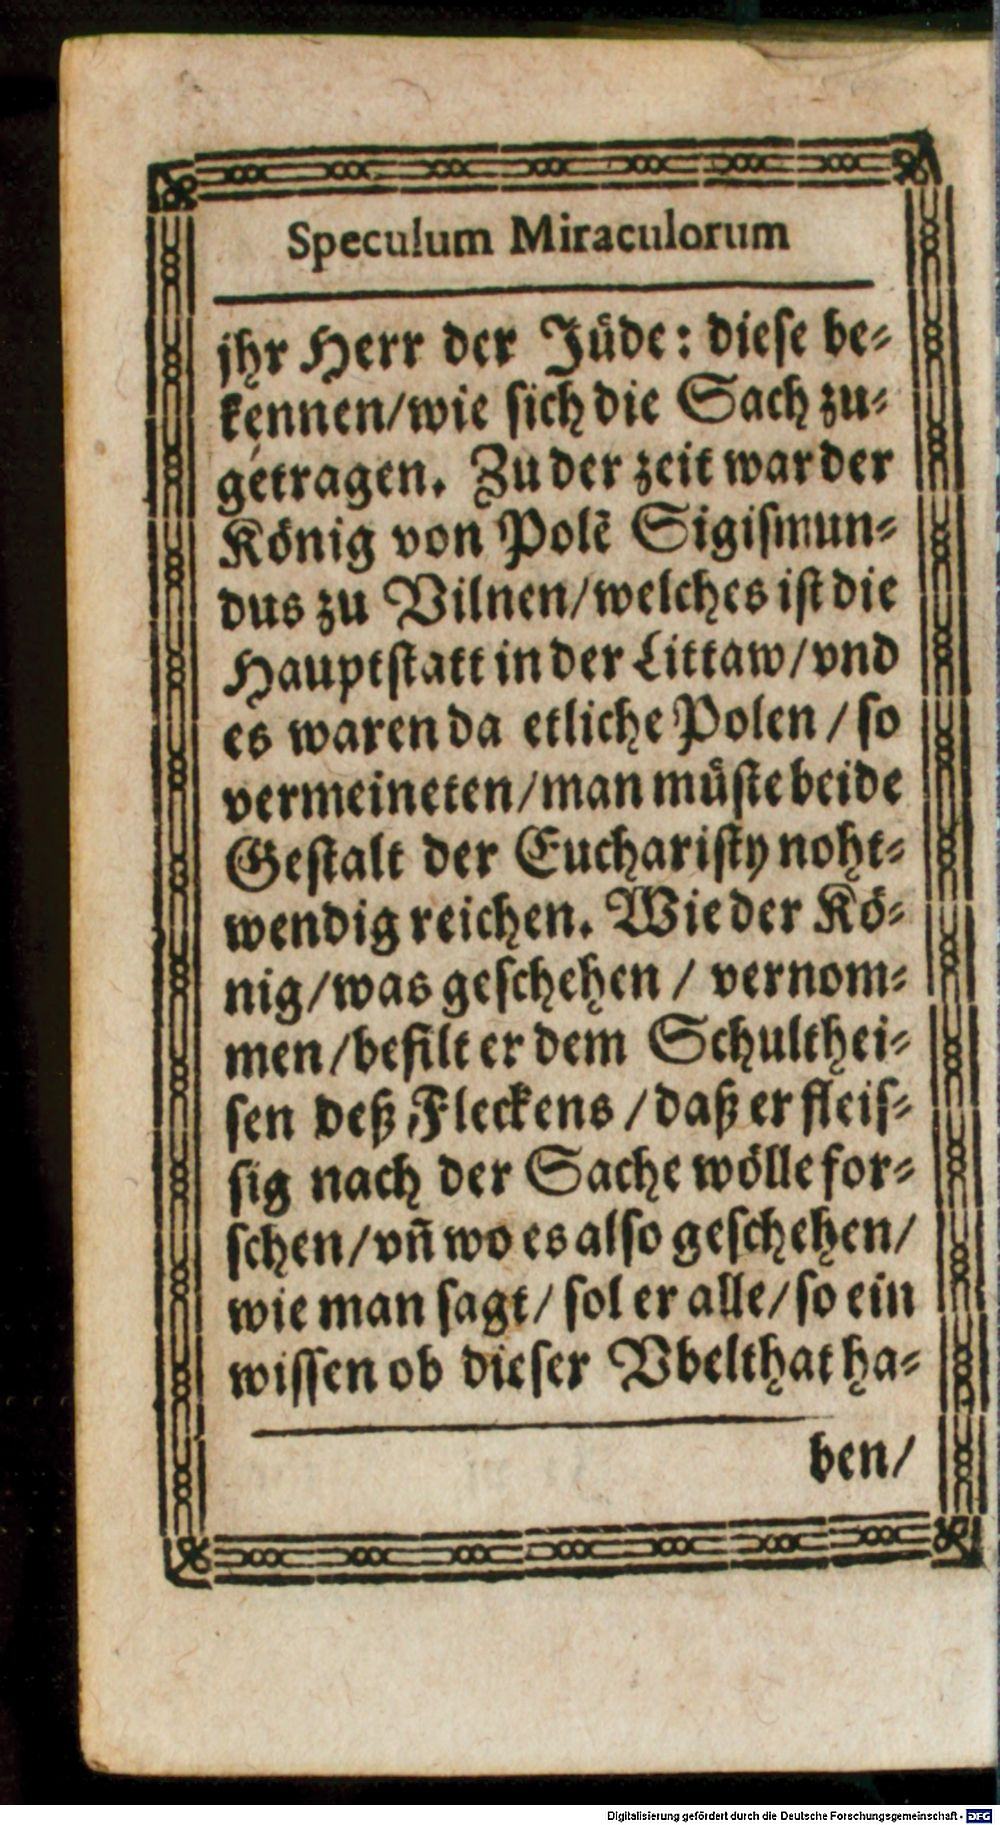 Speculum Miraculorum
jhr Herr der Jüde: diese be-
kennen/wie sich die Sach zu-
getragen. Zu der zeit war der
König von Polẽ Sigismun-
dus zu Vilnen/welches ist die
Hauptstatt in der Littaw/vnd
es waren da etliche Polen/so
vermeineten/man müste beide
Gestalt der Eucharisty noht-
wendig reichen. Wie der Kö-
nig/was geschehen/ vernom-
men/befilt er dem Schulthei-
sen deß Fleckens/daß er fleis-
sig nach der Sache wölle for-
schen/vñ wo es also geschehen/
wie man sagt/sol er alle/so ein
wissen ob dieser Vbelthat ha-
ben/
Digitalisierung gefördert durch die Deutsche Forschungsgemeinschaft - DFG